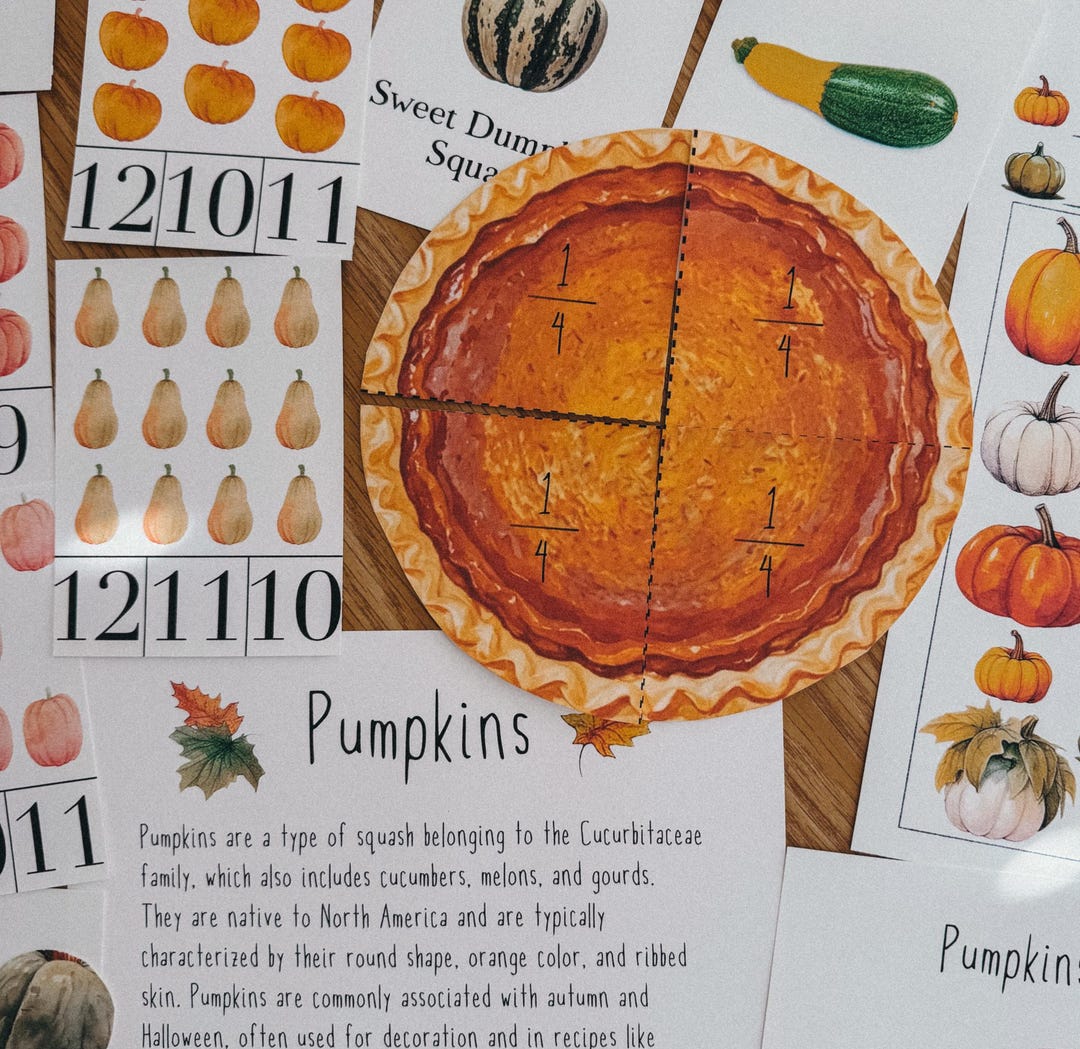 12 10 11
Sweet
12 11 10
9
11
1
4
1
4
1
4
1
4
Pumpkins
Pumpkins are a type of squash belonging to the Cucurbitaceae
family, which also includes cucumbers, melons, and gourds.
They are native to North America and are typically
characterized by their round shape, orange color, and ribbed
skin. Pumpkins are commonly associated with autumn and
Halloween, often used for decoration and in recipes like
Pumpkins